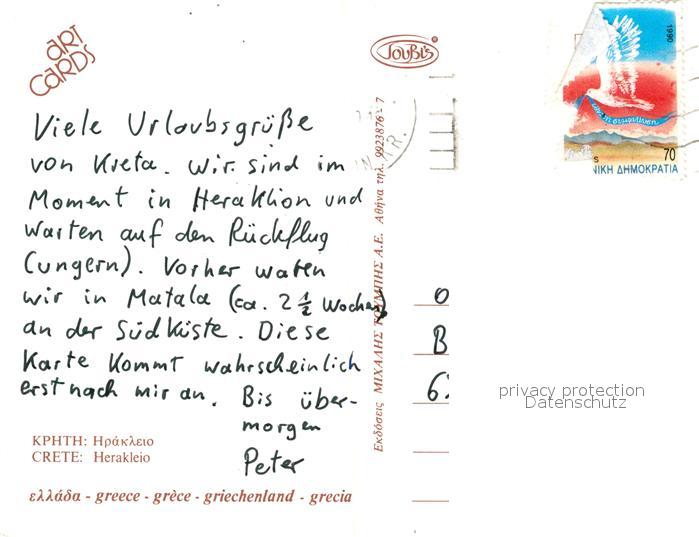 ART
CARDS
SOUBI'S
1990
70
ΝΙΚΗ ΔΗΜΟΚΡΑΤΙΑ
Viele Urlaubsgrüße
von Kreta. Wir sind im
Moment in Heraklion und
warten auf den Rückflug
(ungern). Vorher waren
wir in Matala (ca. 2 ½ Wochen)
an der Südküste. Diese
Karte kommt wahrscheinlich
erst nach mir an. Bis über-
morgen
Peter
ΚΡΗΤΗ: Ηράκλειο
CRETE: Herakleio
ελλάδα - greece - grèce - griechenland - grecia
Εκδόσεις ΜΙΧΑΛΗΣ ΤΟΥΜΠΗΣ Α.Ε. Αθήνα τηλ. 9923876 - 7
O
B
6
privacy protection
Datenschutz